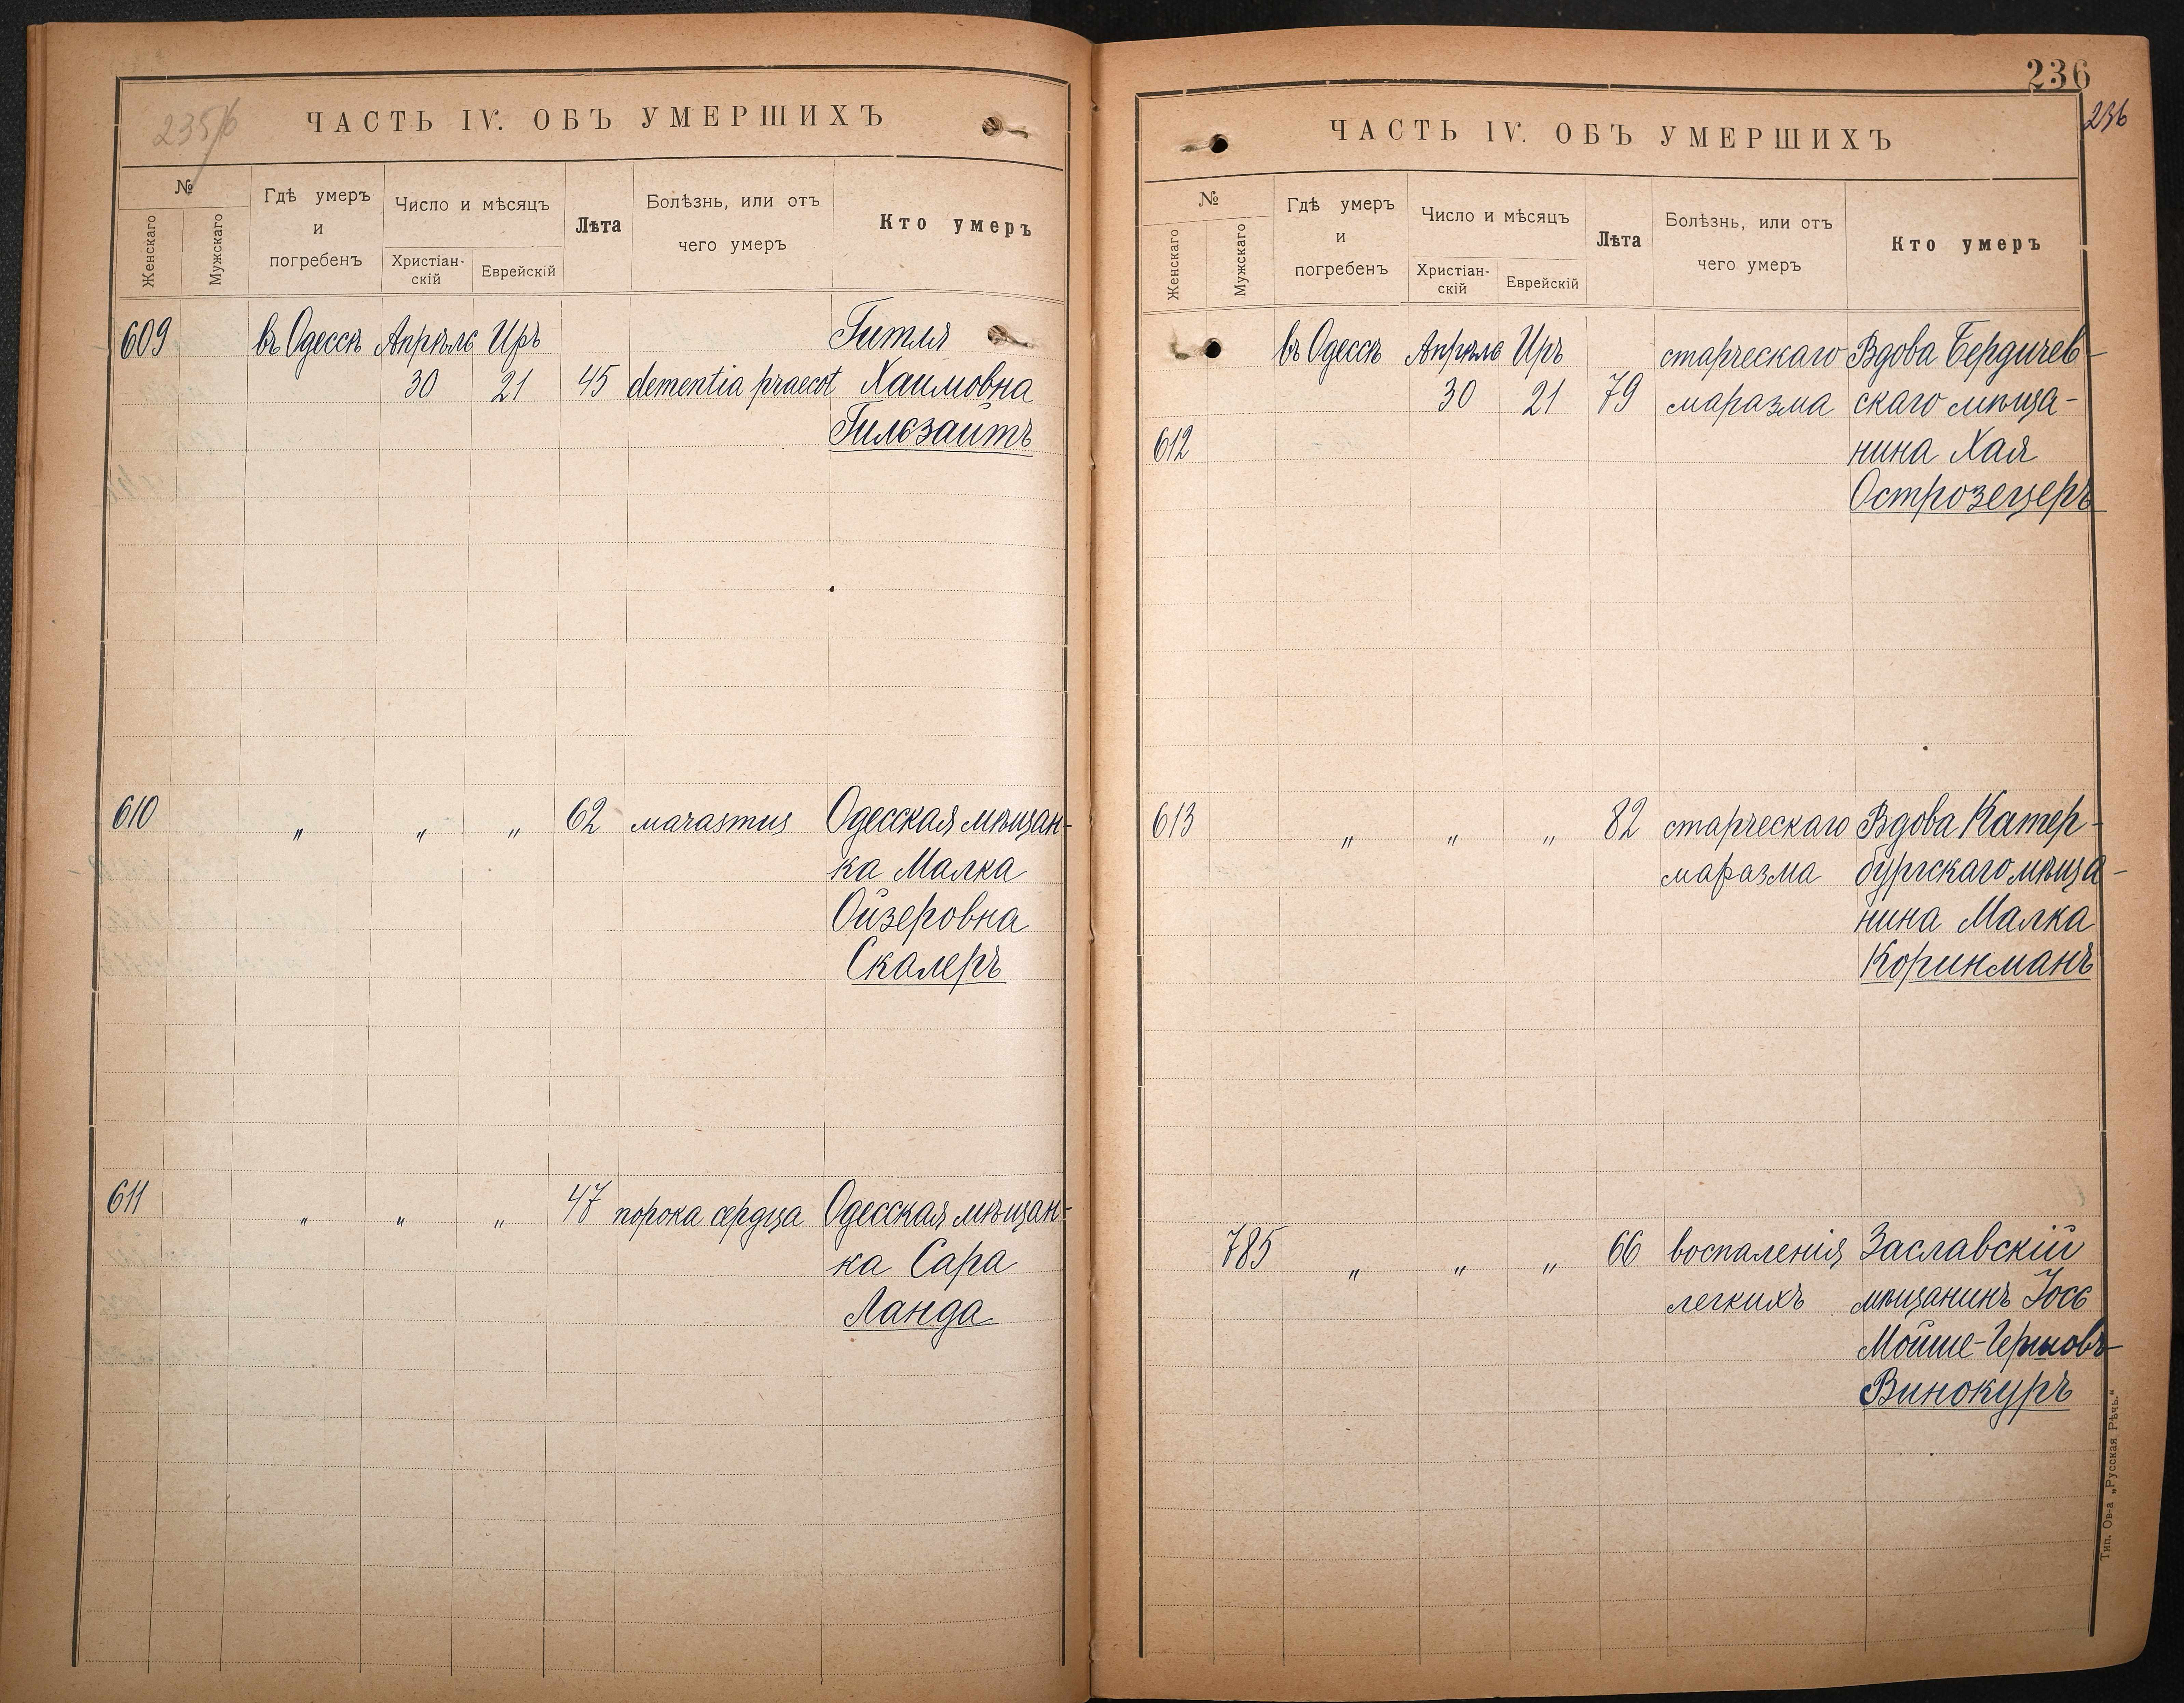 235/б
ЧАСТЬ IV. ОБЪ УМЕРШИХЪ
№
Женскаго
Мужскаго
Гдѣ умеръ
и
погребенъ
Число и мѣсяцъ
Христіан-
скій
Еврейскій
Лѣта
Болѣзнь, или отъ
чего умеръ
Кто умеръ
609 въ Одессѣ Апрѣль Иръ Гитля
30 21 45 dementia praecot Хаимовна
Гилзайтъ
610 " " " 62 marasmus Одесская мѣщан-
ка Малка
Ойзеровна
Скалеръ
611 " " " 47 порока сердца Одесская мѣщан-
ка Сара
Ланда
236
236
ЧАСТЬ IV. ОБЪ УМЕРШИХЪ
№
Женскаго
Мужскаго
Гдѣ умеръ
и
погребенъ
Число и мѣсяцъ
Христіан-
скій
Еврейскій
Лѣта
Болѣзнь, или отъ
чего умеръ
Кто умеръ
въ Одессѣ Апрѣль Иръ старческаго Вдова Бердичев-
30 21 79 маразма скаго мѣща-
612 нина Хая
Острозецеръ
613 " " " 82 старческаго Вдова Катер-
маразма бургскаго мѣща-
нина Малка
Коринманъ
785 " " " 66 воспаленія Заславскій
легкихъ мѣщанинъ Іосъ
Мойше-Гершовъ
Винокуръ
Тип. Ов-а „Русская Рѣчь."